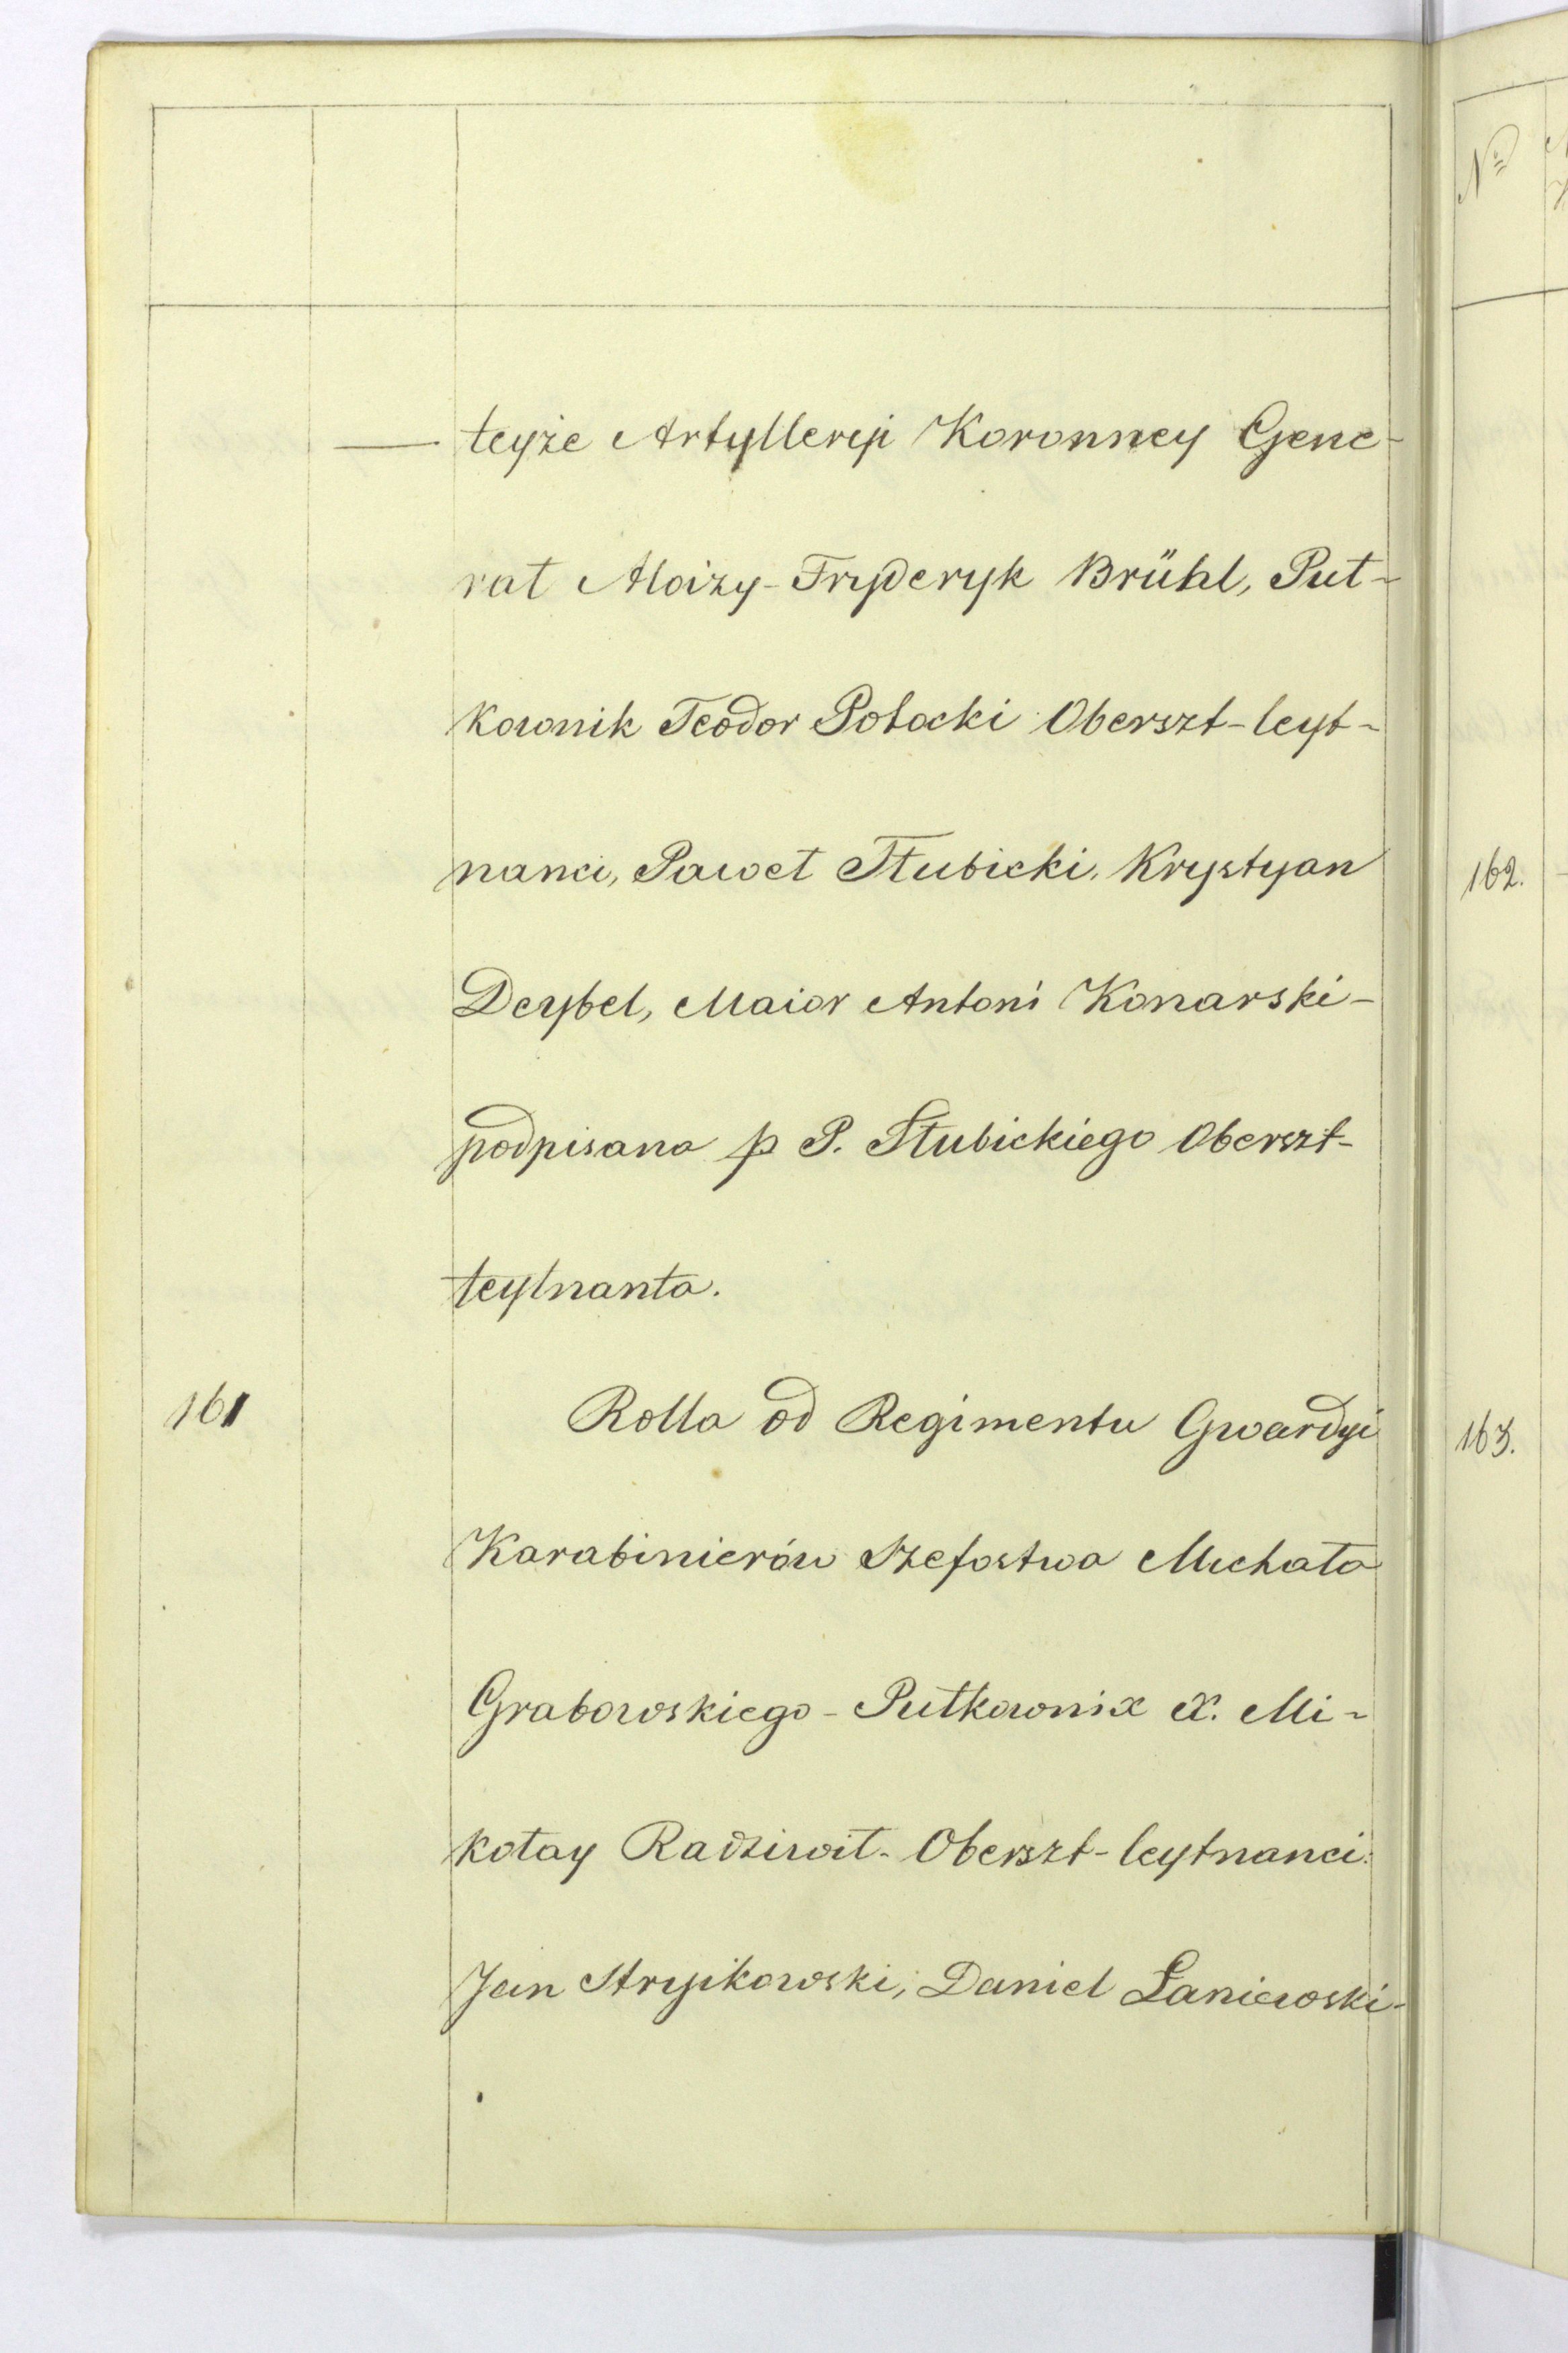 — teyże Artylleryi Koronney Gene-
rał Aloizy-Fryderyk Brühl, Puł-
kownik Teodor Potocki Oberszt-leyt-
nanci, Paweł Słubicki, Krystyan
Deybel, Maior Antoni Konarski-
podpisana p P. Słubickiego Oberszt-
leytnanta.
161 Rolla od Regimentu Gwardyi
Karabinierów Szefostwa Michała
Grabowskiego - Pułkownix X. Mi-
kołay Radziwił. Oberszt-leytnanci:
Jan Stryikowski, Daniel Łaniewski-
No
162.
163.